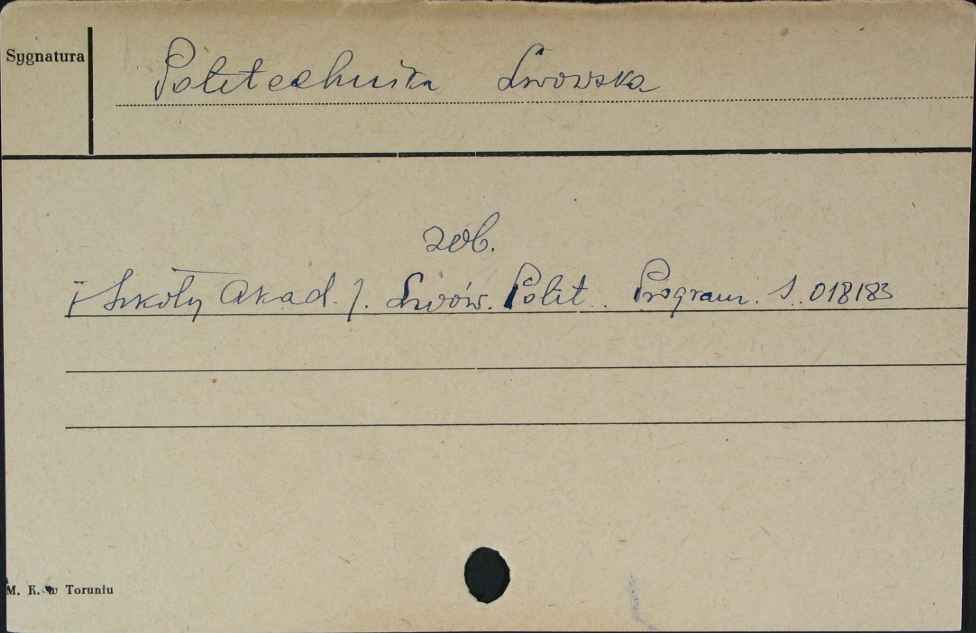 Sygnatura
Politechnika Lwowska
zob.
[Szkoły Akad.]. Lwów. Polit. Program. S. 018183
M. K. w Toruniu